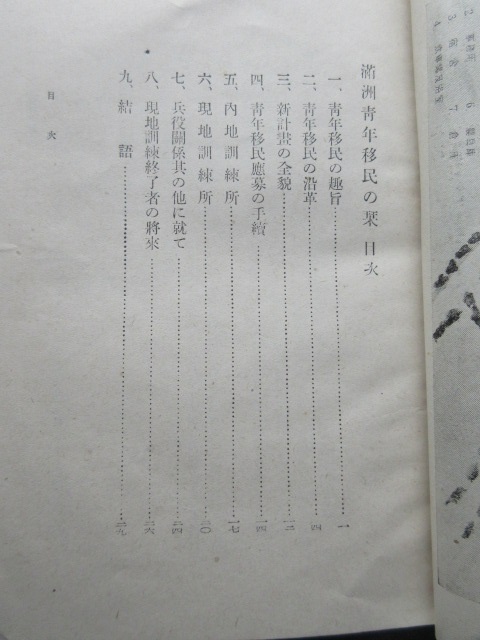 滿洲青年移民の栞 目次
一、靑年移民の趣旨……一
二、靑年移民の沿革……四
三、新計畫の全貌……一三
四、靑年移民應募の手續……一四
五、內地訓練所……一七
六、現地訓練所……二〇
七、兵役關係其の他に就て……二四
八、現地訓練終了者の將來……二六
九、結語……二九
目次